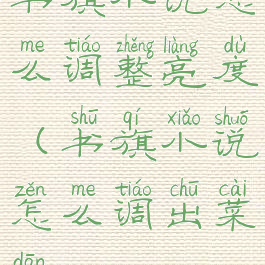 书旗小说怎
me tiáo zhěng liàng dù
么调整亮度
shū qí xiǎo shuō
（书旗小说
zěn me tiáo chū cài
怎么调出菜
dān